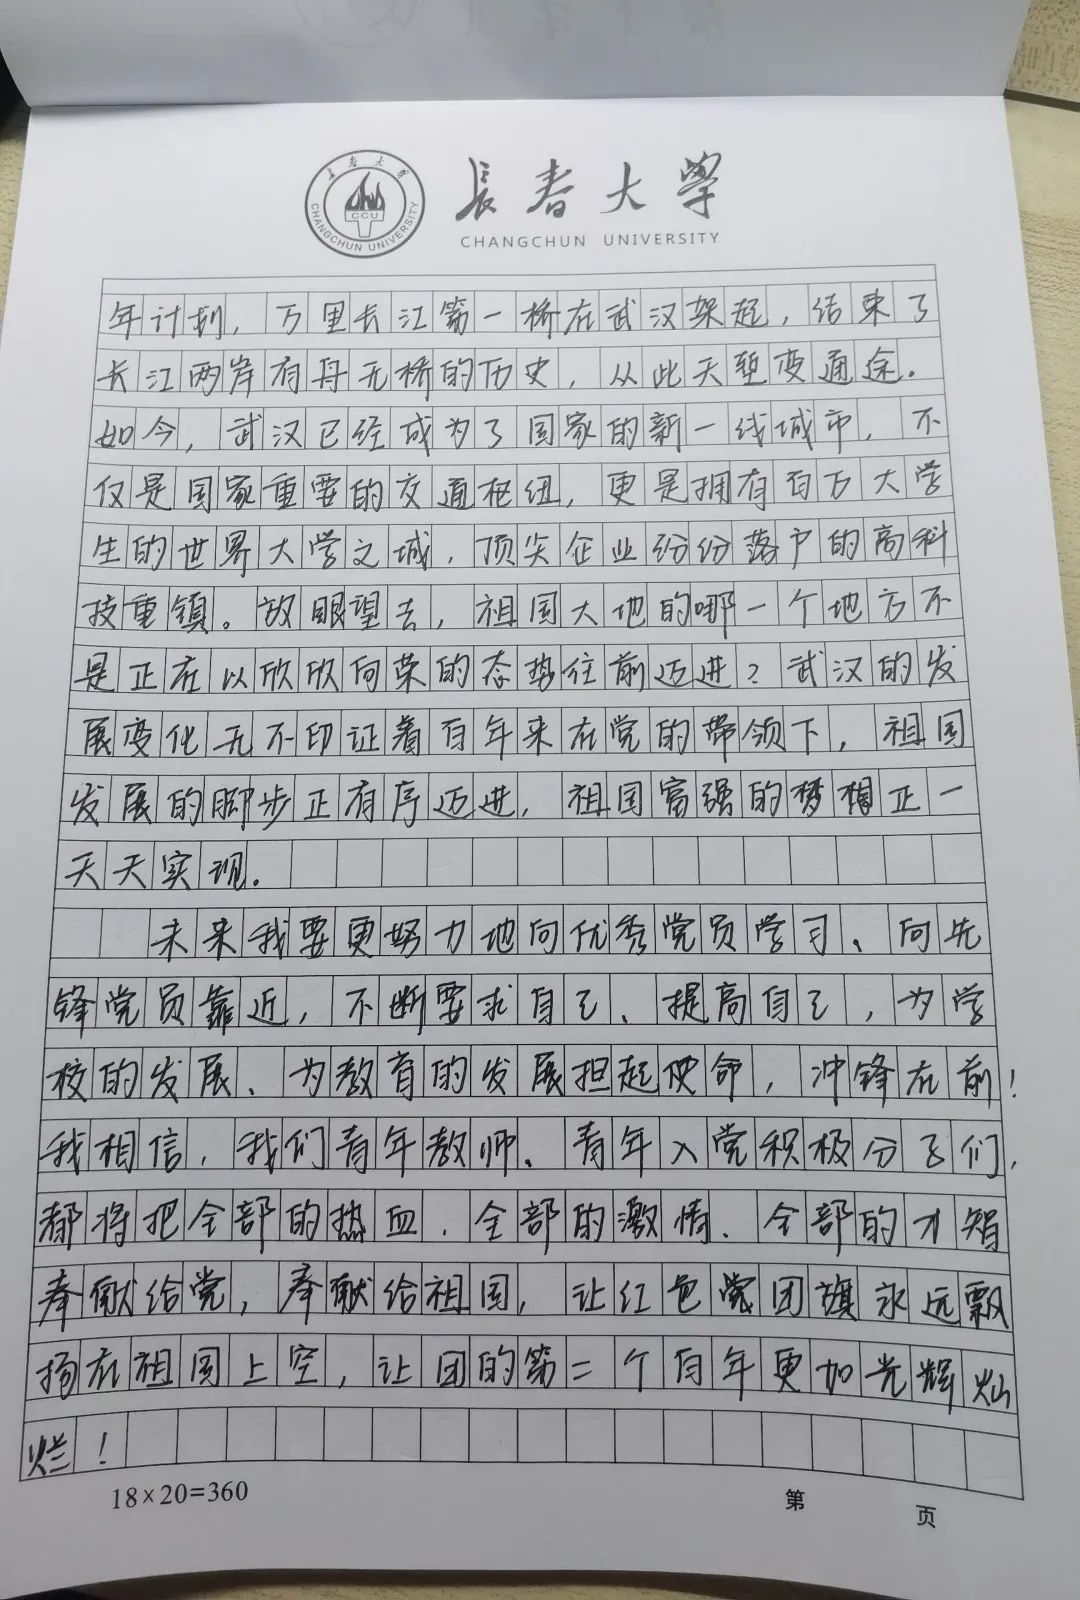 長春大學
CHANGCHUN UNIVERSITY
長春大學
CHANGCHUN UNIVERSITY
CCU
年计划，万里长江第一桥在武汉架起，结束了
长江两岸有舟无桥的历史，从此天堑变通途．
如今，武汉已经成为了国家的新一线城市，不
仅是国家重要的交通枢纽，更是拥有百万大学
生的世界大学之城，顶尖企业纷纷落户的高科
技重镇。放眼望去，祖国大地的哪一个地方不
是正在以欣欣向荣的态势往前迈进？武汉的发
展变化无不印证着百年来在党的带领下，祖国
发展的脚步正有序迈进，祖国富强的梦想正一
天天实现．
未来我要更努力地向优秀党员学习、向先
锋党员靠近，不断要求自己、提高自己，为学
校的发展、为教育的发展担起使命，冲锋在前！
我相信，我们青年教师、青年入党积极分子们，
都将把全部的热血、全部的激情、全部的才智
奉献给党，奉献给祖国，让红色党团旗永远飘
扬在祖国上空，让团的第二个百年更加光辉灿
烂！
18×20=360
第 页